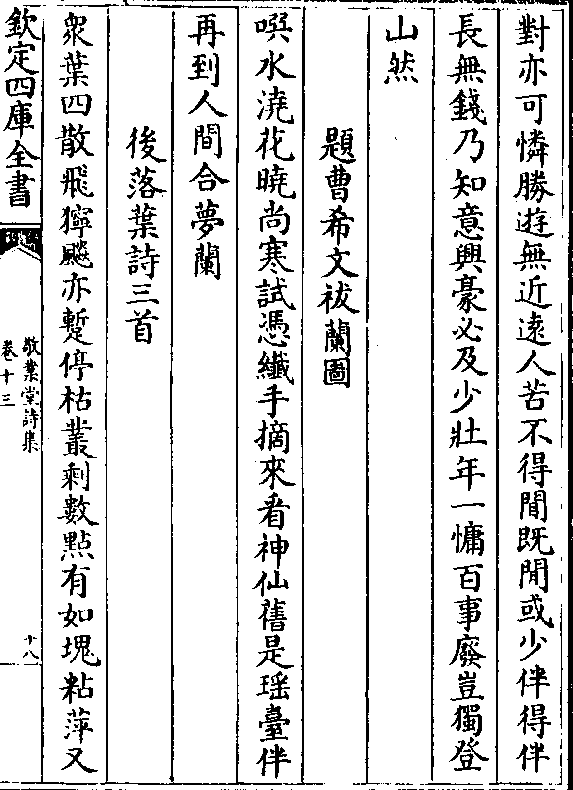 對亦可憐勝遊無近遠人苦不得閒既閒或少伴得伴
長無錢乃知意興豪必及少壯年一慵百事廢豈獨登
山然
題曹希文祓蘭圖
噀水澆花曉尚寒試憑纖手摘來看神仙舊是瑶臺伴
再到人間合夢蘭
後落葉詩三首
衆葉四散飛獰飇亦蹔停枯叢剩數點有如塊粘萍又
欽定四庫全書
敬業堂詩集
卷十三
十八